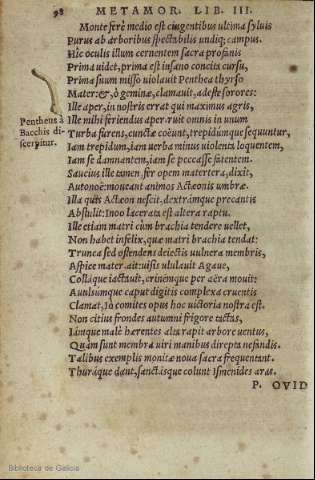 98 METAMOR. LIB. III.
Monte ferè medio est cingentibus ultima syluis
Purus ab arboribus spectabilis undiq; campus.
Hîc oculis illum cernentem sacra profanis
Prima uidet, prima est insano concita cursu,
Prima suum misso uiolauit Penthea thyrso
Mater: &, ô geminæ, clamauit, adeste sorores:
Ille aper, in nostris errat qui maximus agris,
Ille mihi feriendus aper. ruit omnis in unum
Pentheus à
Bacchis di-
scerpitur.
Turba furens, cunctæ coëunt, trepidumq́ue sequuntur,
Iam trepidum, iam uerba minus uiolenta loquentem,
Iam se damnantem, iam se peccasse fatentem.
Saucius ille tamen, fer opem matertera, dixit,
Autonoë: moueant animos Actæonis umbræ.
Illa quis Actæon nescit, dextrámque precantis
Abstulit: Inoo lacerata est altera raptu.
Ille etiam matri cùm brachia tendere uellet,
Non habet infelix, quæ matri brachia tendat:
Trunca sed ostendens deiectis uulnera membris,
Aspice mater, ait: uisis ululauit Agaue,
Colláque iactauit, crinémque per aëra mouit:
Auulsúmque caput digitis complexa cruentis
Clamat, Iò comites opus hoc uictoria nostra est.
Non citius frondes autumni frigore tactas,
Iámque malè hærentes alta rapit arbore uentus,
Quàm sunt membra uiri manibus direpta nefandis.
Talibus exemplis monitæ noua sacra frequentant.
Thuráque dant, sanctásque colunt Ismenides aras.
P. OVID
Biblioteca de Galicia